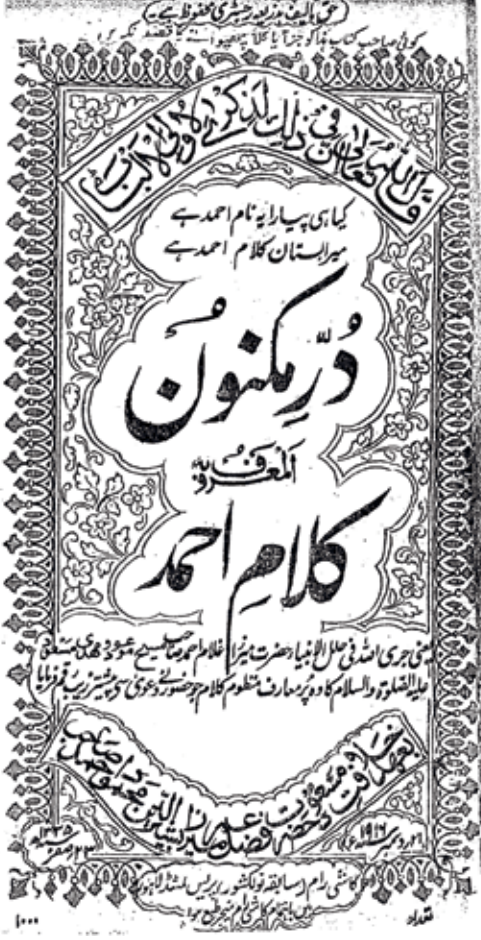 حق تالیف بذریعہ رجسٹری محفوظ ہے۔
کوئی صاحب کتاب ہذا کو جزءً یا کلاً چھپوانے کا قصد نکریں
قال اللہ تعالیٰ ان فی ذلک لذکریٰ لاولی الالباب
کیا ہی پیارا یہ نام احمد ہے
میرا بستان کلام احمد ہے
دُرِّ مکنون
المعروف بہ
کلامِ احمد
یعنی جری اللہ فی حلل الانبیاء حضرت میرزا غلام احمد صاحب مسیح موعود و مہدی
علیہ الصلوٰۃ والسلام کا وہ پُر معارف منظوم کلام جو حضور نے دعویٰ سے پیشتر رقم فرمایا
بعہد خلافت حضرت فضل عمر میرزا بشیر الدین محمود احمد صاحب
دسمبر ۱۹۱۶ء
۲۳ صفر ۱۳۳۵ھ
کاشی رام سابقہ نولکشوری پریس لمیٹڈ لاہور
میں باہتمام کاشی رام منیجر طبع ہوا
تعداد
۱۰۰۰